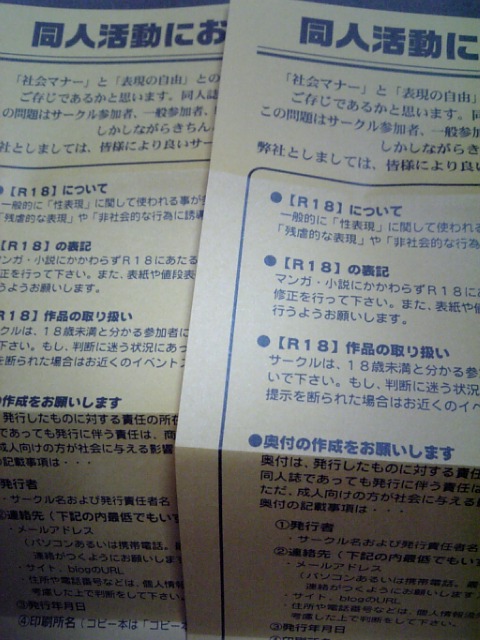 同人活動にお
「社会マナー」と「表現の自由」との
ご存じであるかと思います。同人誌
の問題はサークル参加者、一般参加者、
しかしながらきちん
社としましては、皆様により良いサー
●【R18】について
一般的に「性表現」に関して使われる事が
「残虐的な表現」や「非社会的な行為に誘導
【R18】の表記
マンガ・小説にかかわらずR18にあたる
修正を行って下さい。また、表紙や値段表
うようお願いします。
R18】作品の取り扱い
クルは、18歳未満と分かる参加者に
下さい。もし、判断に迷う状況にあっ
を断られた場合はお近くのイベント
作成をお願いします
発行したものに対する責任の所在
であっても発行に伴う責任は、商
成人向けの方が社会に与える影響
の記載事項は・・・
発行者
・サークル名および発行責任者名
②連絡先（下記の内最低でもい
・メールアドレス
（パソコンあるいは携帯電話。
連絡がつくようにお願いしま
・サイト、blogのURL
・住所や電話番号などは、個人情報
考慮した上で判断をして下さい。
③発行年月日
④印刷所名（コピー本は「コピー
同人活動に
「社会マナー」と「表現の自由」
ご存じであるかと思います。同
この問題はサークル参加者、一般参加
しかしながら
弊社としましては、皆様により良い
●【R18】について
一般的に「性表現」に関して使われる
「残虐的な表現」や「非社会的な行為
●【R18】の表記
マンガ・小説にかかわらずR18に
修正を行って下さい。また、表紙や
行うようお願いします。
●【R18】作品の取り扱い
サークルは、18歳未満と分かる参
いで下さい。もし、判断に迷う状況
提示を断られた場合はお近くのイベ
●奥付の作成をお願いします
奥付は、発行したものに対する責任
同人誌であっても発行に伴う責任は
ただ、成人向けの方が社会に与える
奥付の記載事項は・・・
①発行者
・サークル名および発行責任者名
②連絡先（下記の内最低でも
・メールアドレス
（パソコンあるいは携帯電話。
連絡がつくようにお願いし
・サイト、blogのURL
・住所や電話番号などは、個人情報
考慮した上で判断をして下さ
③発行年月日